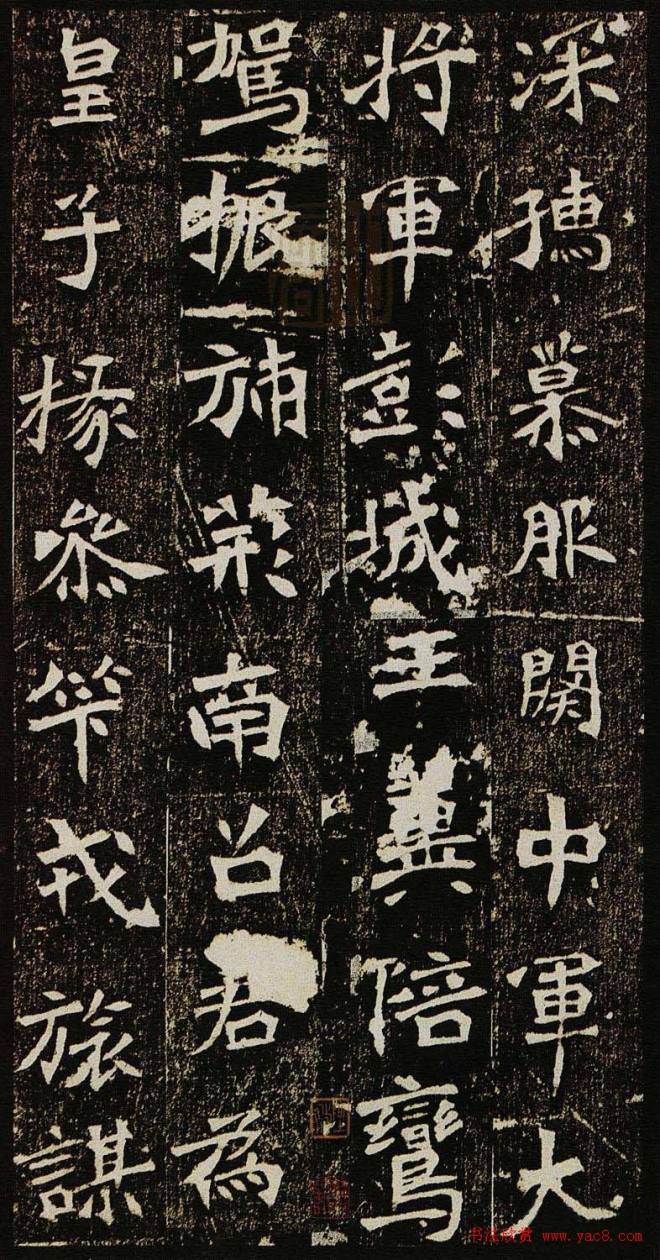 深摶慕服闋中軍大
將軍彭城王翼陪鸞
駕振旆荊南召君為
皇子掾參笇戎旅謀
书法欣赏 www.yac8.com